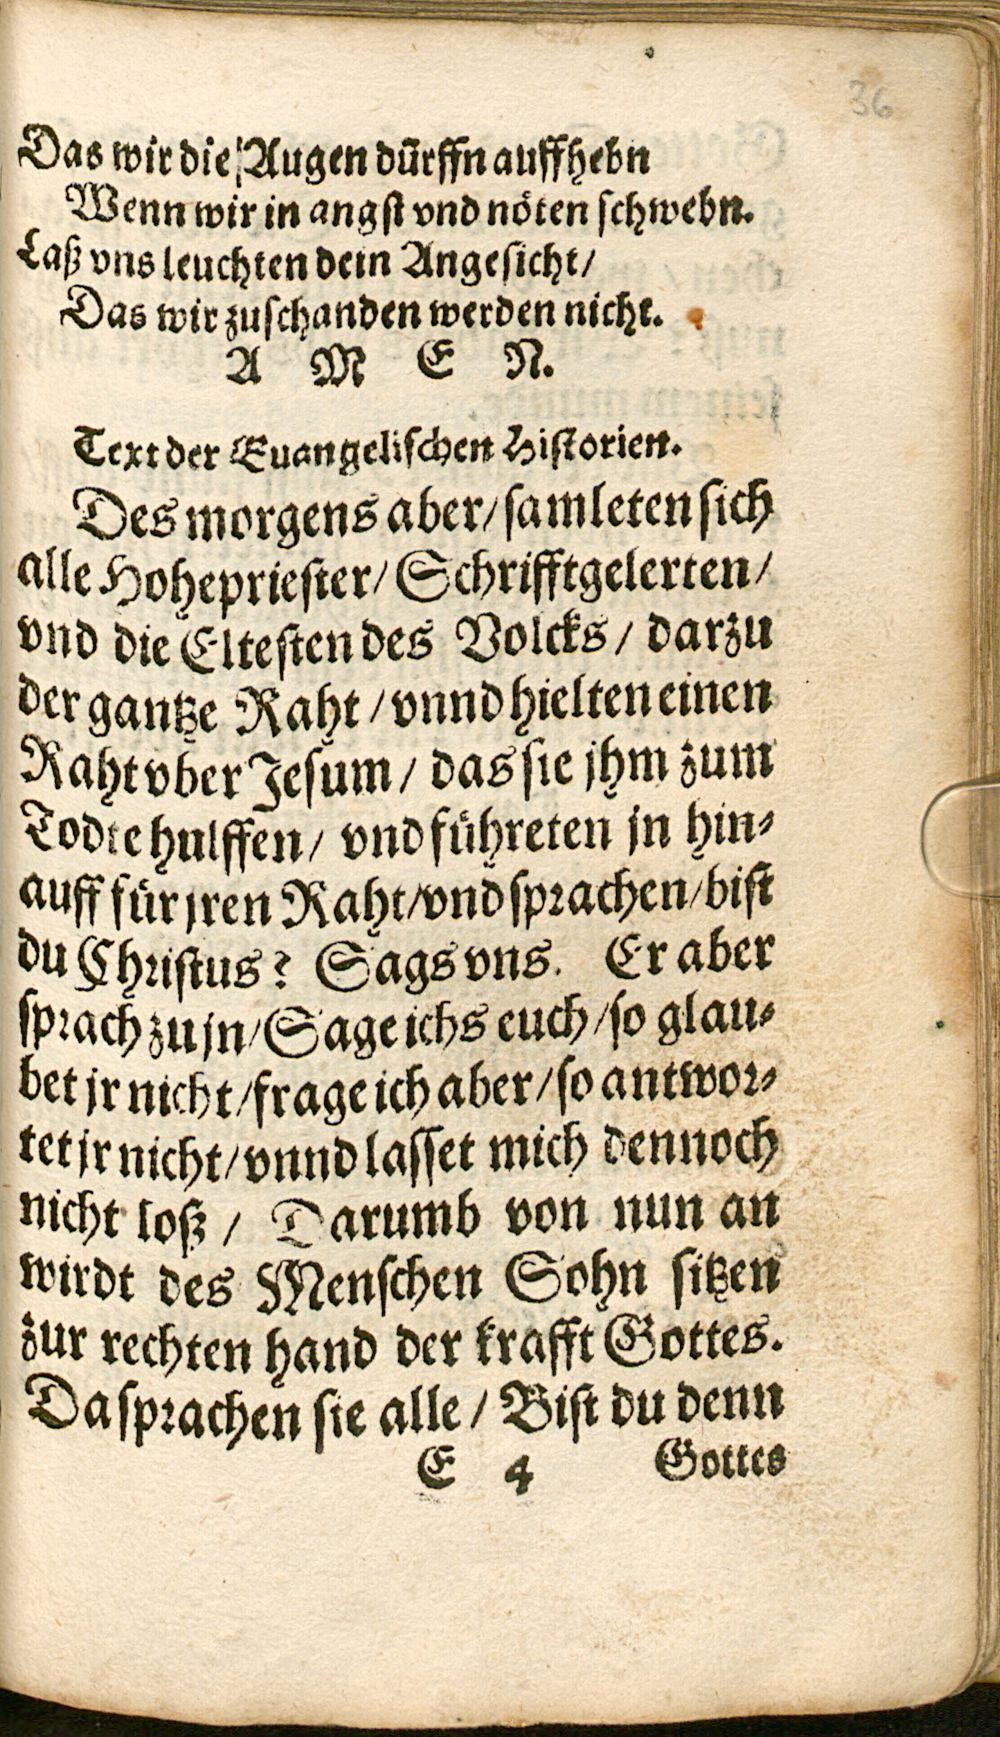 36
Das wir die Augen dürffn auffhebn
Wenn wir in angst vnd nöten schwebn.
Laß vns leuchten dein Angesicht/
Das wir zuschanden werden nicht.
A M E N.
Text der Euangelischen Historien.
Des morgens aber/ samleten sich
alle Hohepriester/ Schrifftgelerten/
vnd die Eltesten des Volcks/ darzu
der gantze Raht/ vnnd hielten einen
Raht vber Jesum/ das sie jhm zum
Todte hulffen/ vnd führeten jn hin-
auff für jren Raht/ vnd sprachen/ bist
du Christus? Sags vns. Er aber
sprach zu jn/ Sage ichs euch/ so glau-
bet jr nicht/ frage ich aber/ so antwor-
tet jr nicht/ vnnd lasset mich dennoch
nicht loß/ Darumb von nun an
wirdt des Menschen Sohn sitzen
zur rechten hand der krafft Gottes.
Da sprachen sie alle/ Bist du denn
E 4 Gottes